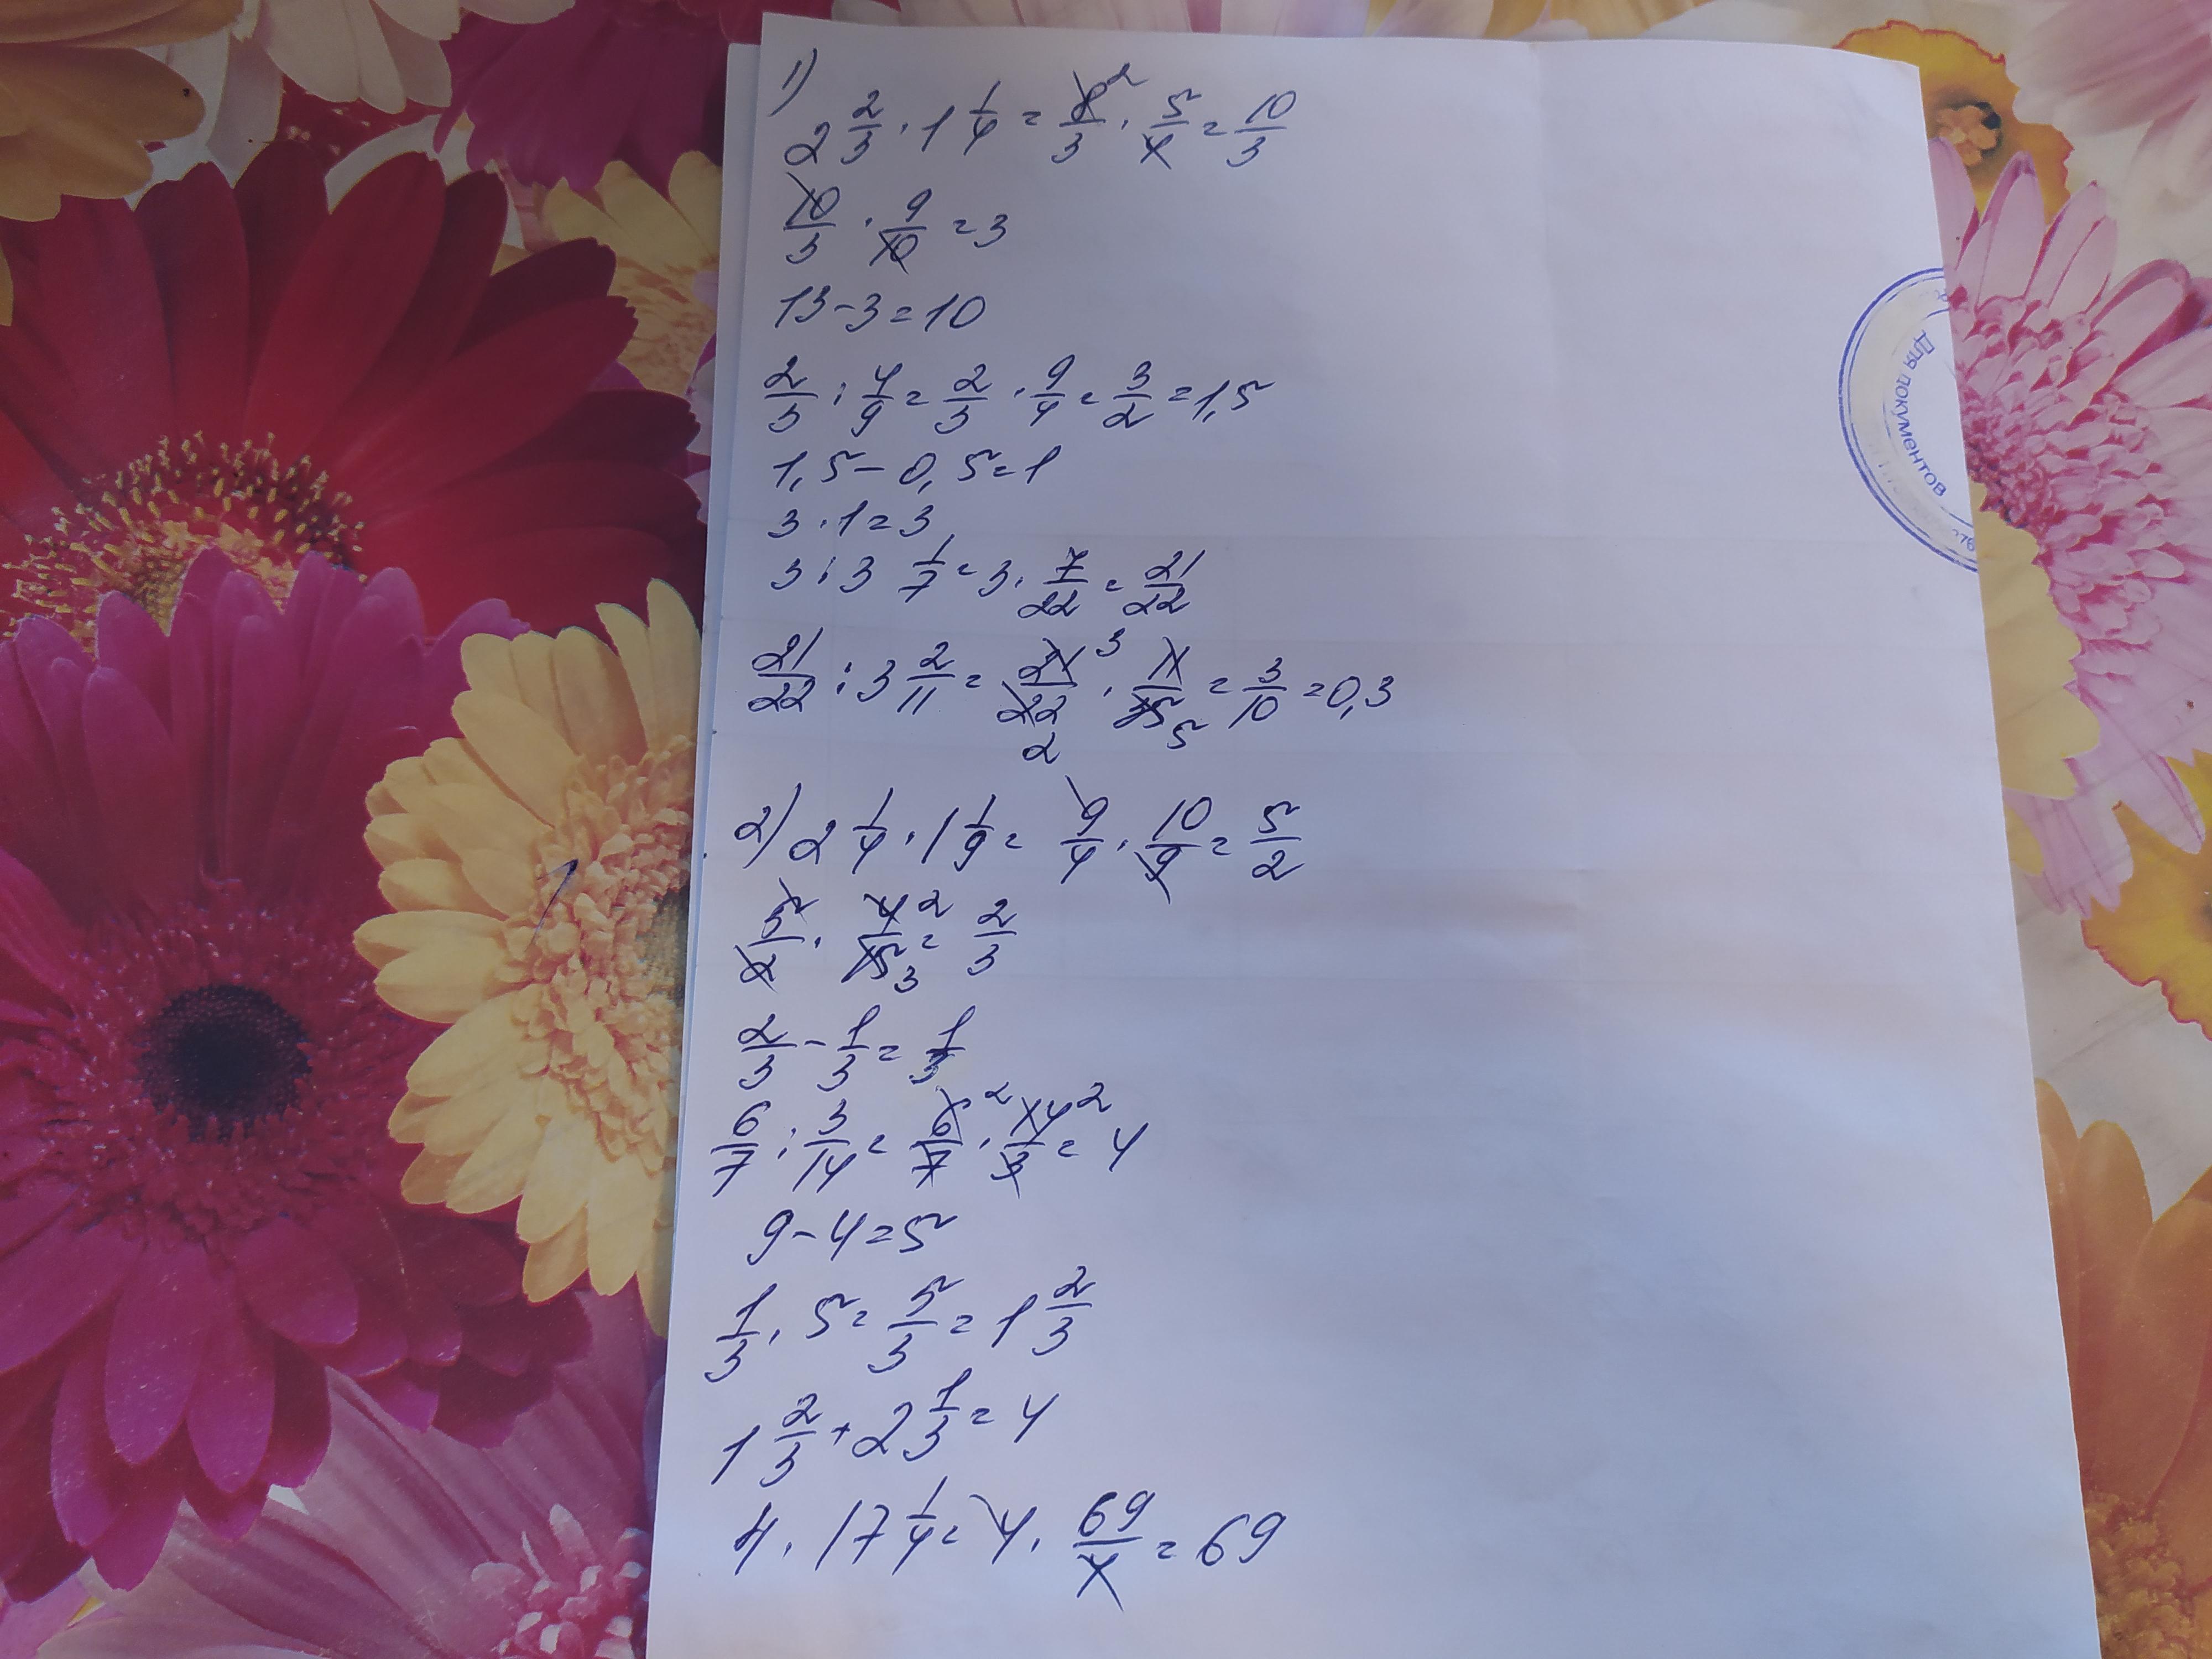 1)
2 2/3 · 1 1/4 = 8/3 ² · 5/4 = 10/3
10/3 · 9/10 = 3
13 - 3 = 10
2/3 : 4/9 = 2/3 · 9/4 = 3/2 = 1,5
1,5 - 0,5 = 1
3 · 1 = 3
3 : 3 1/7 = 3 · 7/22 = 21/22
21/22 : 3 2/11 = 21/22 3 2 · 11/35 5 = 3/10 = 0,3
2) 2 1/4 · 1 1/9 = 9/4 · 10/9 = 5/2
5/2 · 4/15 2 3 = 2/3
2/3 - 1/3 = 1/3
6/7 : 3/14 = 6/7 2 · 14/3 2 = 4
9 - 4 = 5
1/3 · 5 = 5/3 = 1 2/3
1 2/3 + 2 1/3 = 4
4 · 17 1/4 = 4 · 69/4 = 69
Для документов